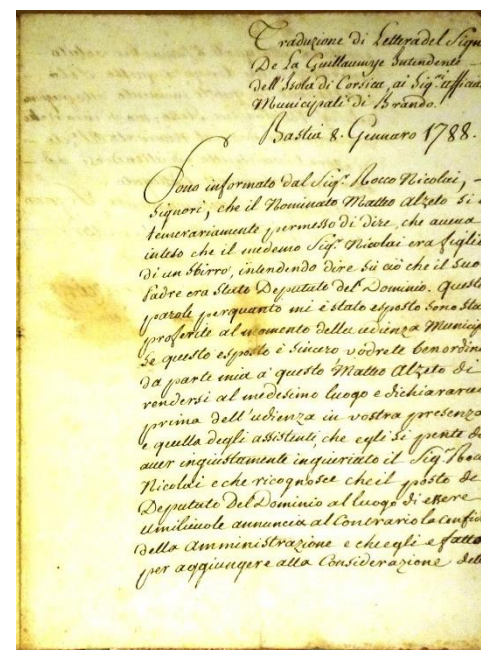 Traduzione di Lettera del Sign
De La Guillaumye Intendente
dell'Isola di Corsica, ai Sig.ri ufficia
Municipali di Brando.
Bastia 8. Gennaro 1788.
Sono informato dal Sig.r Rocco Nicolai, -
Signori, che il Nominato Matteo Alzeto Si è
temerariamente permesso di dire, che aveva
inteso che il medemo Sig.r Nicolai era figlio
di un Sbirro, intendendo dire Sù ciò che il Suo
Padre era Stato Deputato del Dominio. Queste
parole perquanto mi è stato esposto Sono Sta
proferite al momento della udienza Municip
Se questo esposto è Sincero vodrete ben ordin
da parte mia a questo Matteo Alzeto di
rendersi al medesimo luogo e dichiarare
prima dell'udienza in vostra presenza
e quella degli assistenti, che egli Si pente d
aver ingiustamente ingiuriato il Sig.r Roc
Nicolai e che ricognosce che il posto de
Deputato Del Dominio al luogo di essere
umilievole annuncia al Contrario la Confid
della Amministrazione e che egli e fatto
per aggiungere alla Considerazione del